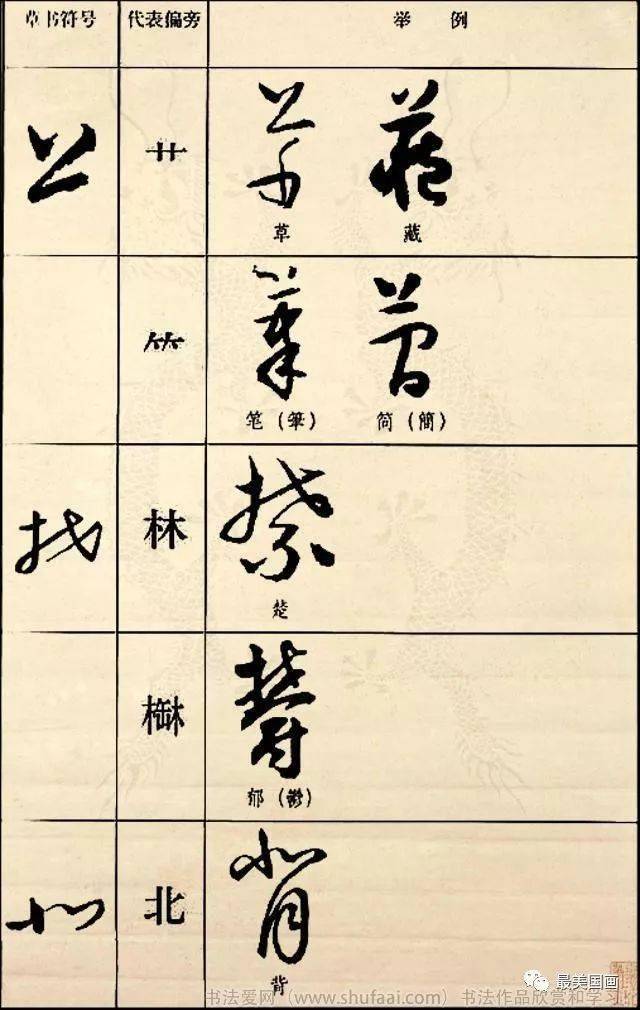 草书符号 代表偏旁 举例
艹
草 藏
⺮
笔（筆） 简（簡）
林
楚
郁（鬱）
北
背
最美国画
书法爱网（www.shufaai.com）书法作品欣赏和学习